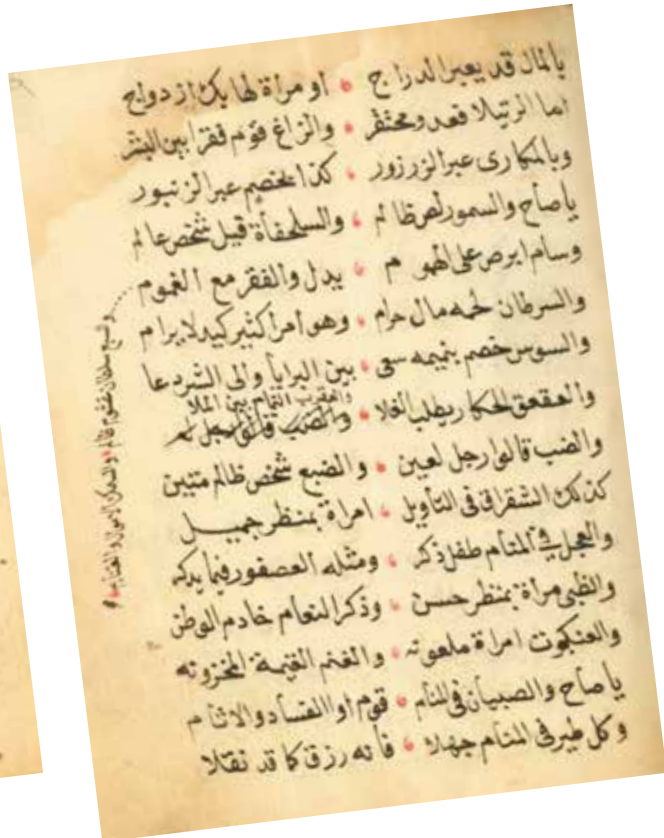 بالمال قد يعبر الدراج ۞ او مراة لها بك ازدواج
اما الرتيلا فعدو محتقر ۞ والزاغ قوم فقرا بين البشر
وبالمكارى عبر الزرزور ۞ كذا بخصم عبر الزنبور
ياصاح والسمور لص ظالم ۞ والسلحفاة قيل شخص عالم
وسام ابرص على الهموم ۞ يدل والفقر مع الغموم
والسرطان لحمه مال حرام ۞ وهو امرا كثير كيد لا يرام
والسوس خصم بنميمه سعى ۞ بين البرايا والى الشر دعا
والعقعق الحكار يطلب الغلا ۞ والعقرب النمام بين الملا
والضب قالوا رجل لعين ۞ والضبع شخص ظالم متين
كذلك الشقراق فى التاويل ۞ امراة بمنظر جميل
والعجل في المنام طفل ذكر ۞ ومثله العصفور فيما يذكر
والظبى مراة بمنظر حسن ۞ وذكر النعام خادم الوطن
والعنكبوت امراة ملعونه ۞ والغنم الغنيمة المخزونه
ياصاح والصبيان فى المنام ۞ قوم اوا الفساد والاثام
وكل طير فى المنام جهلا ۞ فانه رزق كما قد نقلا
والسبع سلطان غشوم ظالم ۞ والسمك الاموال والغنايم